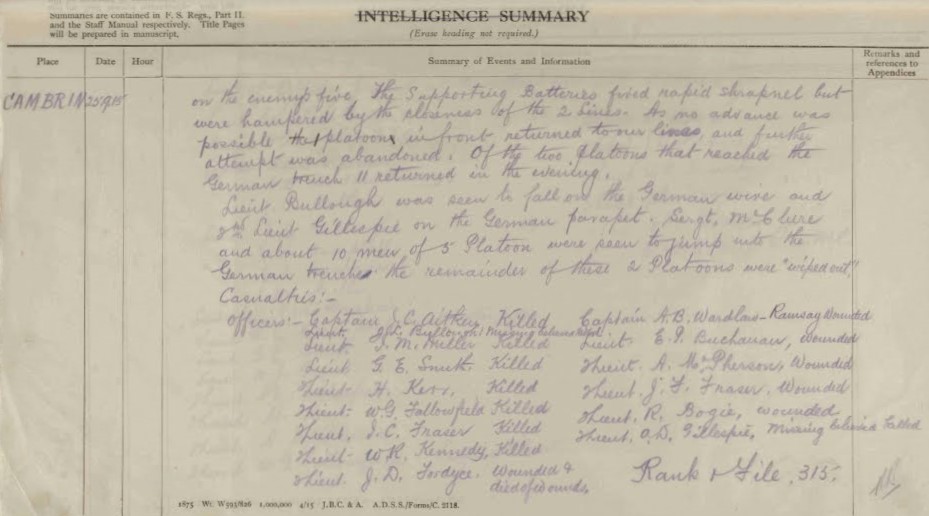 Summaries are contained in F. S. Regs., Part II.
and the Staff Manual respectively. Title Pages
will be prepared in manuscript.
INTELLIGENCE SUMMARY
(Erase heading not required.)
Place Date Hour Summary of Events and Information Remarks and references to Appendices
CAMBRIN 25.9.15
on the enemy's five. The Supporting Batteries fired rapid shrapnel but
were hampered by the closeness of the 2 lines. As no advance was
possible the platoons in front returned to our lines, and further
attempt was abandoned. Of the two platoons that reached the
German trench 11 returned in the evening.
Lieut Bullough was seen to fall on the German wire and
2nd Lieut Gillespie on the German parapet. Sergt. McClure
and about 10 men of 5 Platoon were seen to jump into the
German trenches the remainder of these 2 Platoons were "wiped out"
Casualties:-
Officers:- Captain J.C. Aitken Killed Captain A.B. Wardlaw-Ramsay Wounded
Lieut. J.L. Bullough Missing believed killed
Lieut. J.M. Miller Killed Lieut. E.P. Buchanan, wounded
Lieut G.E. Smith. Killed 2/Lieut. A. McPherson, Wounded
2/Lieut. H. Kerr, Killed 2/Lieut. J.F. Fraser, Wounded
2/Lieut- W.G. Fallowfield Killed 2/Lieut. R. Bogie, wounded
2/Lieut. J.C. Fraser Killed 2/Lieut. A.D. Gillespie, Missing believed killed
2/Lieut- W.R. Kennedy, Killed
2/Lieut. J.D. Fordyce. Wounded & died of wounds, Rank & File, 315.
1875 Wt. W593/826 1,000,000 4/15 J.B.C. & A. A.D.S.S./Forms/C. 2118.